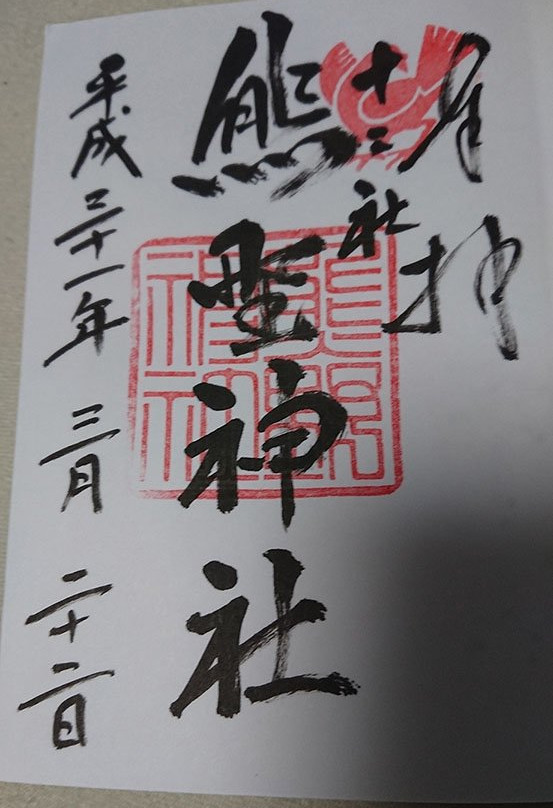 奉拝
十二社
熊野神社
平成三十一年 三月 二十二日